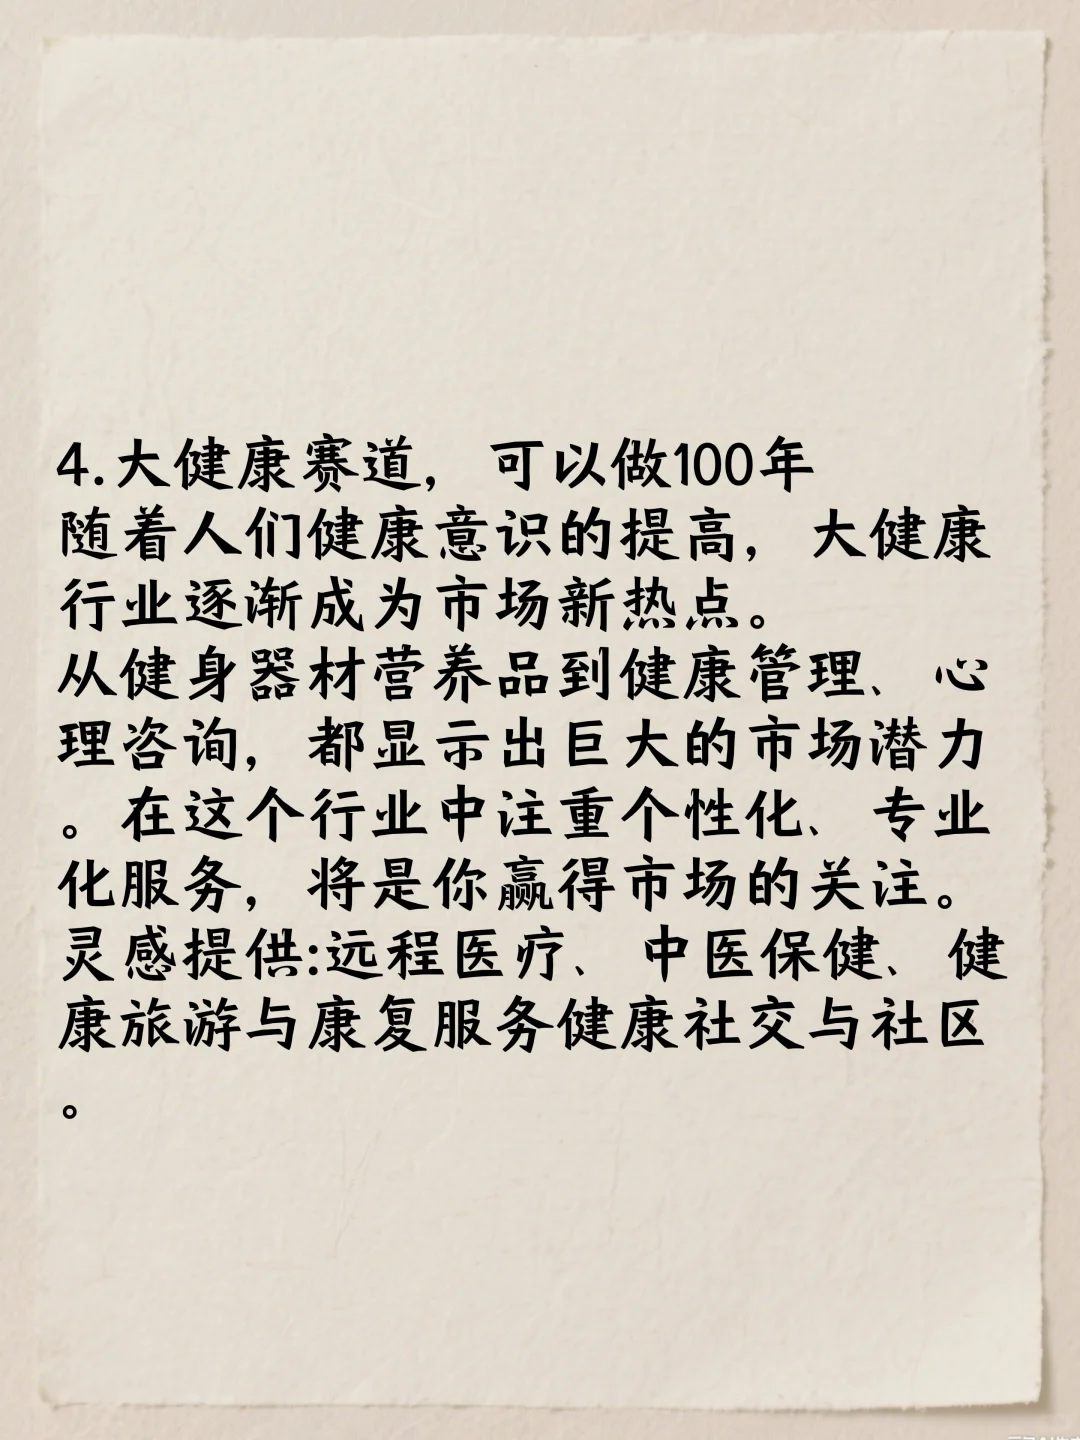 4.大健康赛道，可以做100年
随着人们健康意识的提高，大健康
行业逐渐成为市场新热点。
从健身器材营养品到健康管理、心
理咨询，都显示出巨大的市场潜力
。在这个行业中注重个性化、专业
化服务，将是你赢得市场的关注。
灵感提供:远程医疗、中医保健、健
康旅游与康复服务健康社交与社区
。